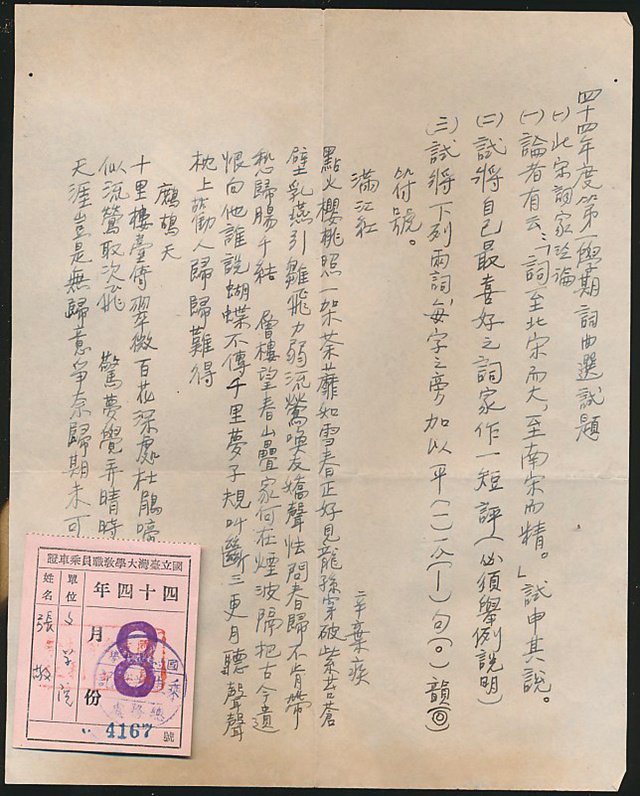 四十四年度第一學期詞曲選試題
(一)北宋詞家泛論
(一)論者有云：「詞至北宋而大，至南宋而精。」試申其說。
(二)試將自己最喜好之詞家作一短評(必須舉例說明)
(三)試將下列兩詞，每字之旁加以平(一)仄(｜)句(。)韻(◎)
符號。
滿江紅
辛棄疾
點火櫻桃照一架荼蘼如雪春正好見龍孫穿破紫苔蒼
壁乳燕引雛飛力弱流鶯喚友嬌聲怯問春歸不肯帶
愁歸腸千結 層樓望春山疊家何在煙波隔把古今遺
恨向他誰說蝴蝶不傳千里夢子規叫斷三更月聽聲聲
枕上勸人歸歸難得
鷓鴣天
十里樓臺倚翠微百花深處杜鵑啼
似流鶯取次飛 驚夢覺弄晴時
天涯豈是無歸意爭奈歸期未可
國立臺灣大學敎職員乘車證
四十四年
8
月份
單位
文學院
姓名
張敬
4167號